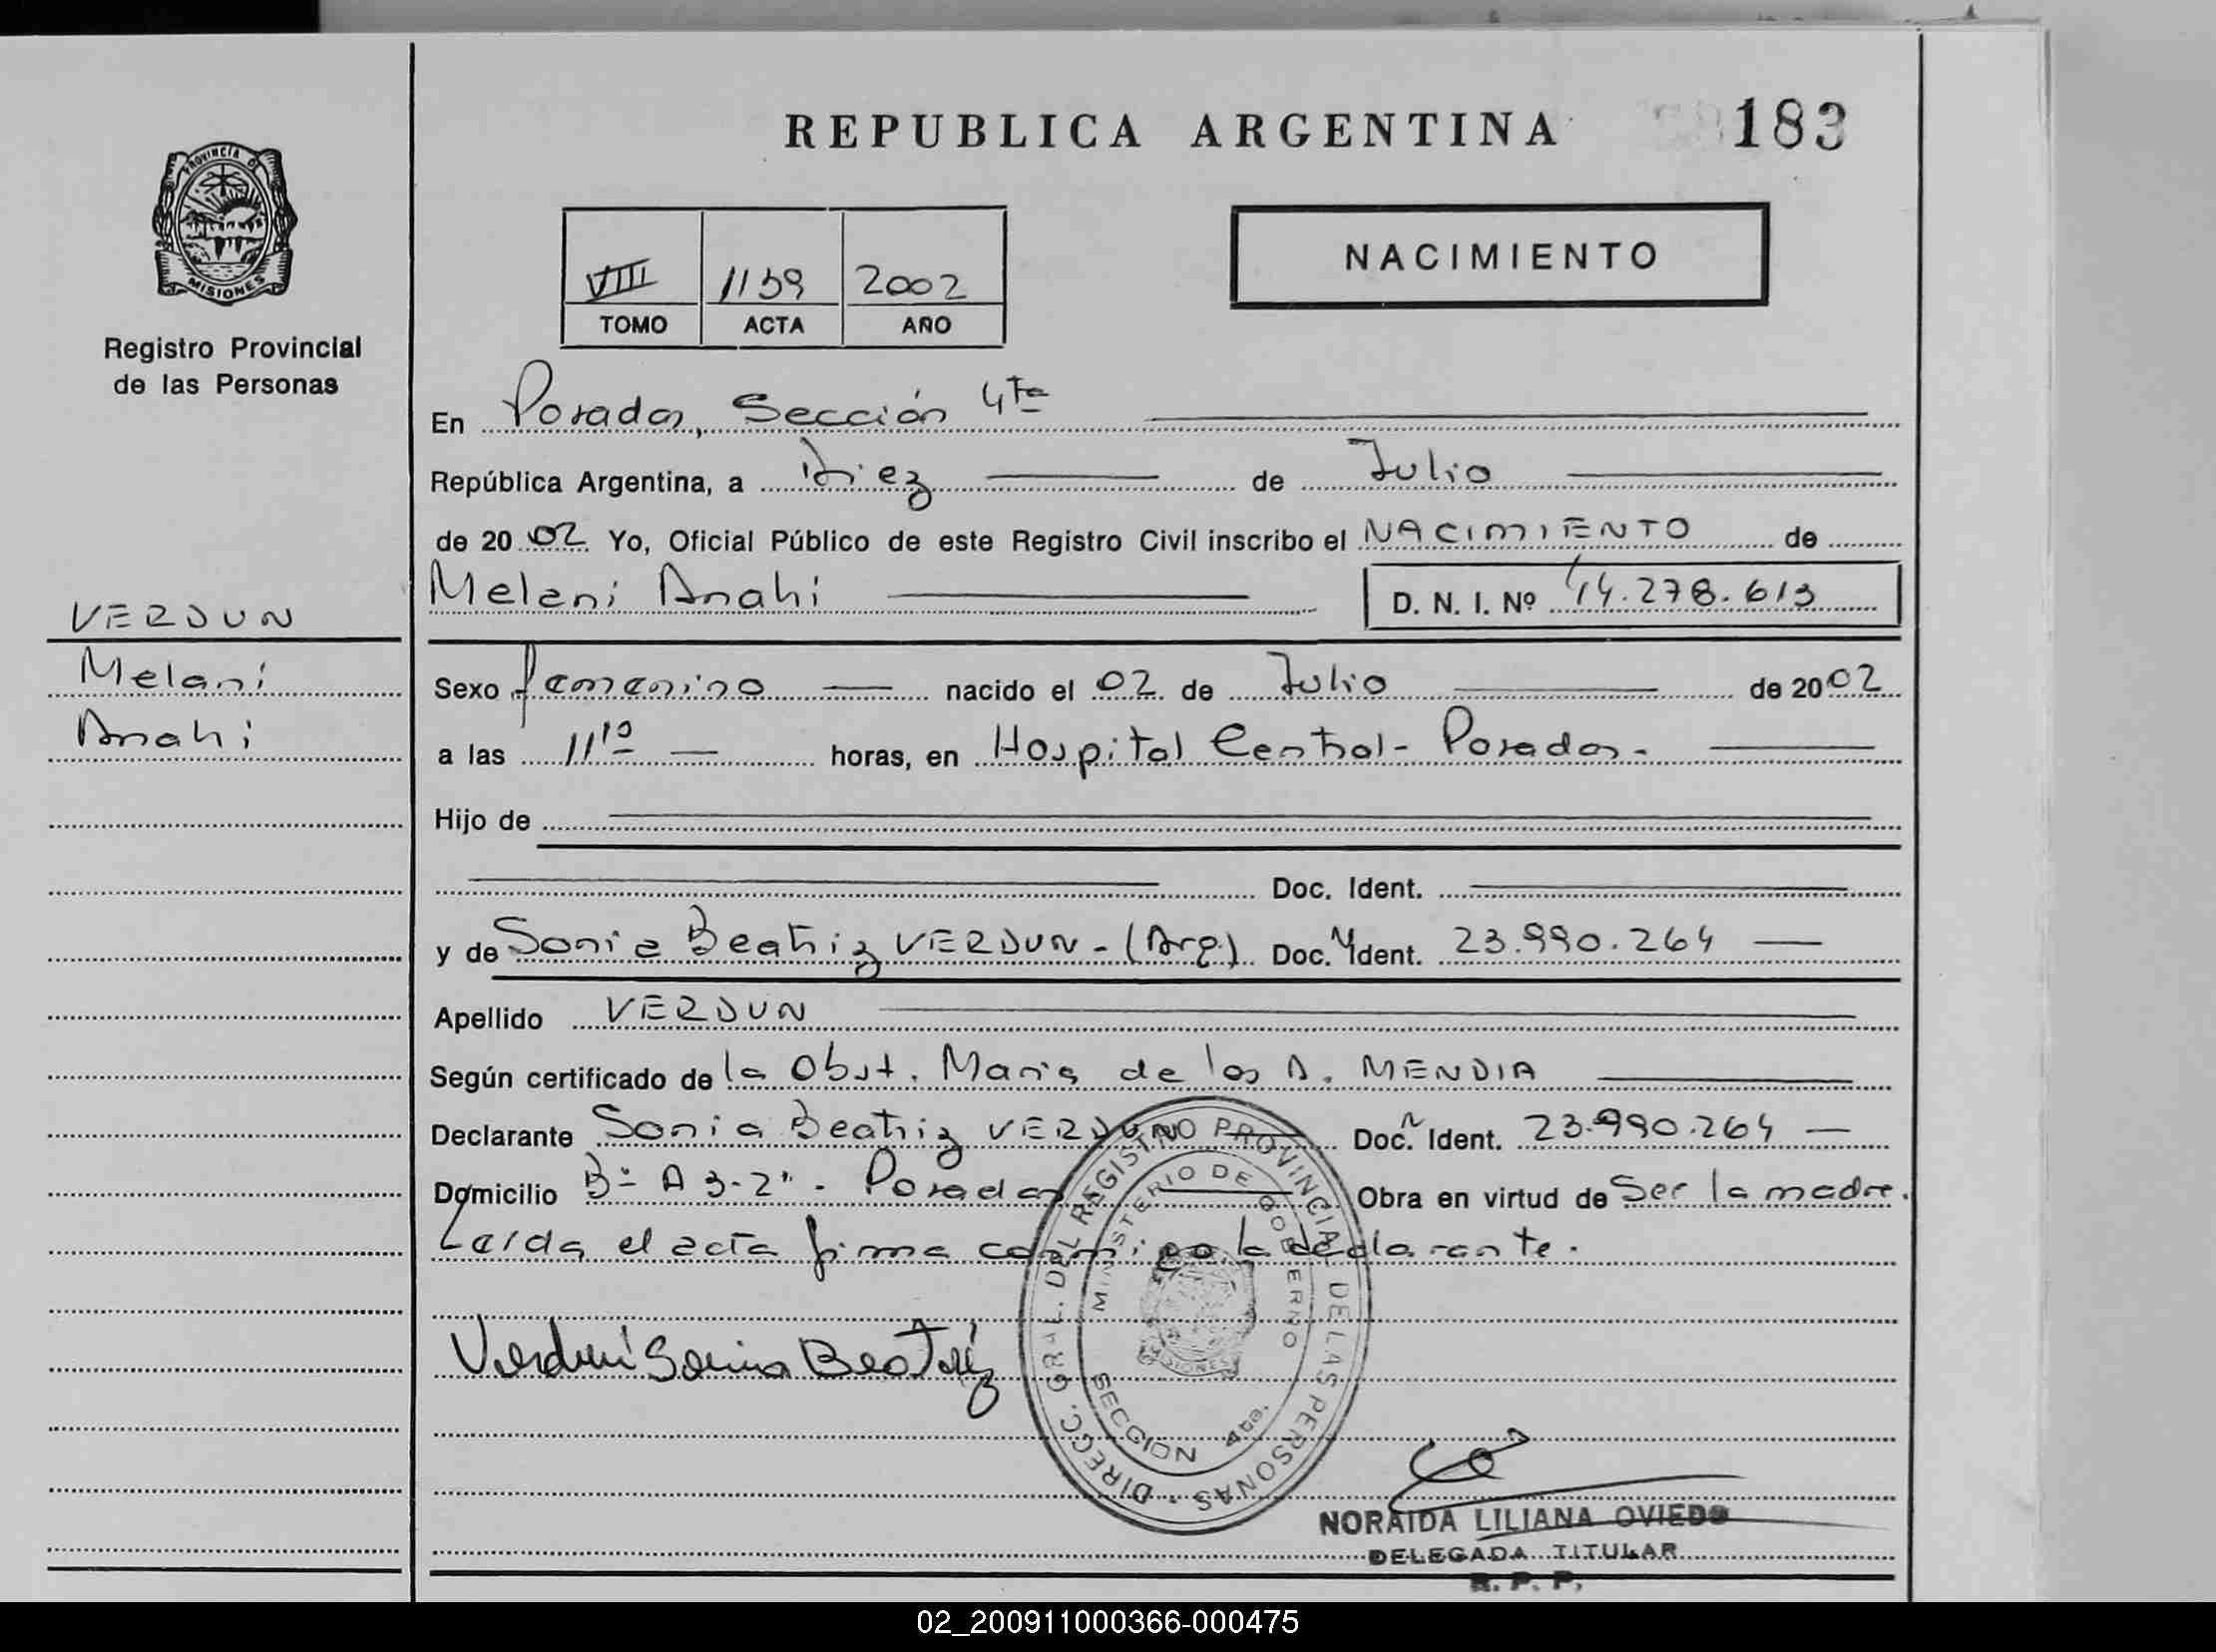 REPUBLICA ARGENTINA
183
PROVINCIA DE
MISIONES
Registro Provincial
de las Personas
VIII 1139 2002
TOMO ACTA AÑO
NACIMIENTO
En Posadas, Sección 4ta
República Argentina, a diez de Julio
de 2002 Yo, Oficial Público de este Registro Civil inscribo el NACIMIENTO de
Melani Anahi D. N. I. Nº 44.278.613
VERDUN
Melani
Anahi
Sexo femenino nacido el 02 de Julio de 2002
a las 11 10 horas, en Hospital Central - Posadas -
Hijo de
Doc. Ident.
y de Sonia Beatriz VERDUN - (Arg.) Doc. Ident. 23.990.264
Apellido VERDUN
Según certificado de la Obst. Maria de los A. MENDIA
Declarante Sonia Beatriz VERDUN Doc. Ident. 23.990.264
Domicilio Bº A 3-2 - Posadas Obra en virtud de Ser la madre.
Leida el acta firma conmigo la declarante.
Verdun Sonia Beatriz
DIRECC. GRAL. DEL REGISTRO PROVINCIAL DE LAS PERSONAS
MINISTERIO DE GOBIERNO
SECCION 4ta.
MISIONES
NORAIDA LILIANA OVIEDO
DELEGADA TITULAR
R. P. P.
02_200911000366-000475